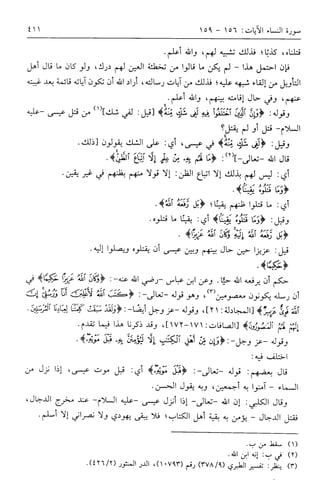 سورة النساء الآيات: ١٥٦ - ١٥٩ ٤١١
قتلناه، كذبًا؛ فذلك تشبيه لهم، والله أعلم.
فإن احتمل هذا - لم يكن ما قالوا من تخطئة العين لهم درك، ولو كان ما قال أهل
التأويل من إلقاء شبهه عليه؛ فذلك من آيات رسالته، أراد الله أن تكون آياته قائمة بعد غيبته
عنهم، وفي حال إقامته بينهم، والله أعلم.
وقوله: ﴿وَإِنَّ الَّذِينَ اخْتَلَفُوا فِيهِ لَفِي شَكٍّ مِنْهُ﴾ [قيل: لفي شك](١) من قتل عيسى -عليه
السلام- قتل أو لم يقتل؟
وقيل: ﴿لَفِي شَكٍّ مِنْهُ﴾ في عيسى، أي: على الشك يقولون [ذلك.
قال الله -تعالى-](٢): ﴿مَا لَهُمْ بِهِ مِنْ عِلْمٍ إِلَّا اتِّبَاعَ الظَّنِّ﴾.
أي: ليس لهم بذلك إلا اتباع الظن: إلا قولا منهم بظنهم في غير يقين.
﴿وَمَا قَتَلُوهُ يَقِينًا﴾.
أي: ما قتلوا ظنهم يقينًا؛ ﴿بَلْ رَفَعَهُ اللَّهُ﴾.
وقيل: ﴿وَمَا قَتَلُوهُ يَقِينًا﴾ أي: يقينًا ما قتلوه.
﴿بَلْ رَفَعَهُ اللَّهُ إِلَيْهِ وَكَانَ اللَّهُ عَزِيزًا﴾.
قيل: عزيزا حين حال بينهم وبين عيسى أن يقتلوه ويصلوا إليه.
﴿حَكِيمًا﴾.
حكم أن يرفعه الله حيًّا. وعن ابن عباس -رضي الله عنه-: ﴿وَكَانَ اللَّهُ عَزِيزًا حَكِيمًا﴾ في
أن رسله يكونون معصومين(٣)، وهو قوله -تعالى-: ﴿كَتَبَ اللَّهُ لَأَغْلِبَنَّ أَنَا وَرُسُلِي إِنَّ
اللَّهَ قَوِيٌّ عَزِيزٌ﴾ [المجادلة: ٢١]، وقوله -عز وجل أيضًا-: ﴿وَلَقَدْ سَبَقَتْ كَلِمَتُنَا لِعِبَادِنَا الْمُرْسَلِينَ.
إِنَّهُمْ لَهُمُ الْمَنصُورُونَ﴾ [الصافات: ١٧١-١٧٢]، وقد ذكرنا هذا فيما تقدم.
وقوله -عز وجل-: ﴿وَإِنْ مِنْ أَهْلِ الْكِتَابِ إِلَّا لَيُؤْمِنَنَّ بِهِ قَبْلَ مَوْتِهِ﴾.
اختلف فيه:
قال بعضهم: قوله -تعالى-: ﴿قَبْلَ مَوْتِهِ﴾ أي: قبل موت عيسى، إذا نزل من
السماء - آمنوا به أجمعين، وبه يقول الحسن.
وقال الكلبي: إن الله -تعالى- إذا أنزل عيسى -عليه السلام- عند مخرج الدجال،
فقتل الدجال - يؤمن به بقية أهل الكتاب؛ فلا يبقى يهودي ولا نصراني إلا أسلم.
(١) سقط من ب.
(٢) في ب: إنه ابن الله.
(٣) ينظر: تفسير الطبري (٣٧٨/٩) رقم (١٠٧٩٣)، الدر المنثور (٤٢٦/٢).